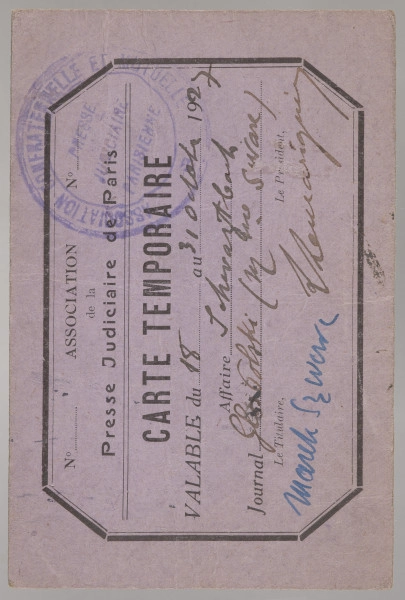 ASSOCIATION CONFRATERNELLE ET MUTUELLE
PRESSE
JUDICIAIRE
PARISIENNE
N° ASSOCIATION N°
de la
Presse Judiciaire de Paris
CARTE TEMPORAIRE
VALABLE du 18 au 31 octobre 1927
Affaire Schwartzbard
Journal
Le Titulaire, Le Président,
Marek Szwarc